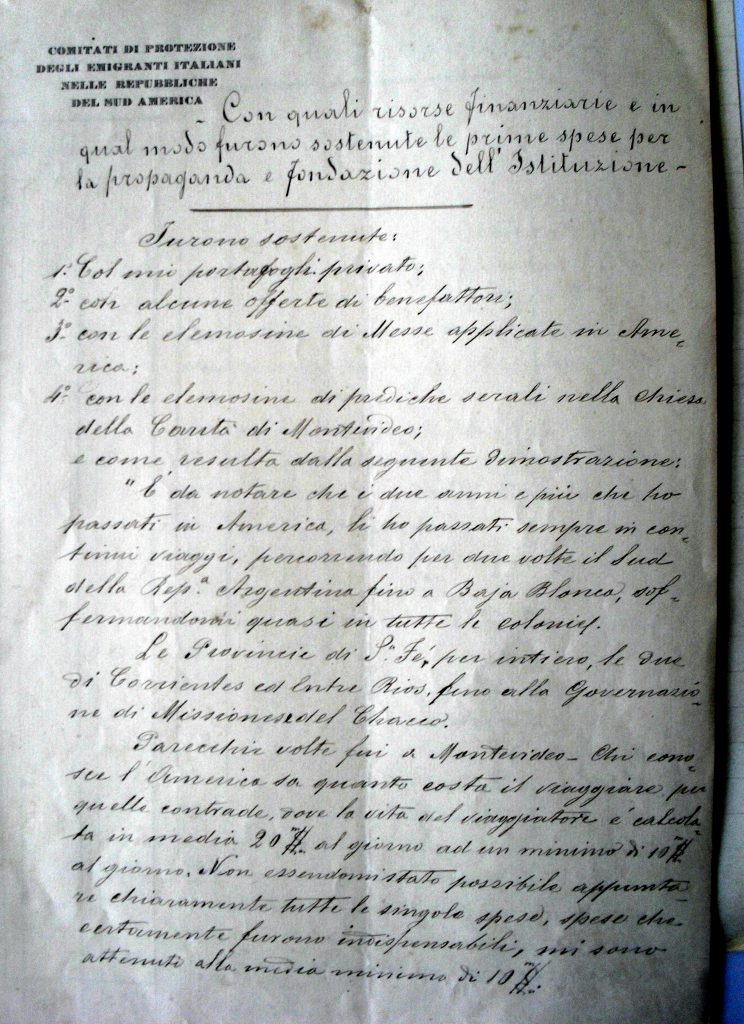 COMITATI DI PROTEZIONE
DEGLI EMIGRANTI ITALIANI
NELLE REPUBBLICHE
DEL SUD AMERICA
- Con quali risorse finanziarie e in
qual modo furono sostenute le prime spese per
la propaganda e fondazione dell'Istituzione -
Furono sostenute:
1.° Col mio portafogli privato;
2.° con alcune offerte di benefattori;
3.° con le elemosine di Messe applicate in Ame-
rica;
4.° con le elemosine di prediche serali nella chiesa
della Carità di Montevideo;
e come resulta dalla seguente dimostrazione:
"È da notare che i due anni e più che ho
passati in America, li ho passati sempre in con-
tinui viaggi, percorrendo per due volte il Sud
della Rep.a Argentina fino a Baja Blanca, sof-
fermandomi quasi in tutte le colonie.
Le Provincie di S.ta Fé, per intiero, le due
di Corrientes ed Entre Rios, fino alla Governazio-
ne di Missiones e del Chacco.
Parecchie volte fui a Montevideo - Chi cono-
sce l'America sa quanto costa il viaggiare per
quelle contrade, dove la vita del viaggiatore è calcola-
ta in media 20 $ al giorno ad un minimo di 10 $
al giorno. Non essendomi stato possibile appunta-
re chiaramente tutte le singole spese, spese che
certamente furono indispensabili, mi sono
attenuto alla media minima di 10 $.